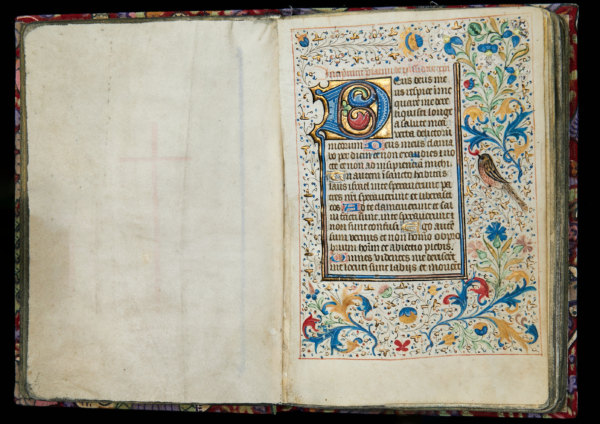 Deus deus me
us respice i me
quare me dere
liquisti longe
a salute mea
verba delictorū
meorum Deus meus clama
bo per diem et non exaudies et no
cte et non ad insipientiā michi
Tu autem i sancto habitas
laus isrl In te speraverunt pa
tres nri speraverunt et liberasti
eos Ad te clamaverunt et sal
vi facti sunt in te speraverunt et
non sunt confusi Ego autē
sum vermis et non homo obpro
brium hoīm et abiectio plebis
Omnes videntes me deriserūt
me locuti sunt labijs et moverūt